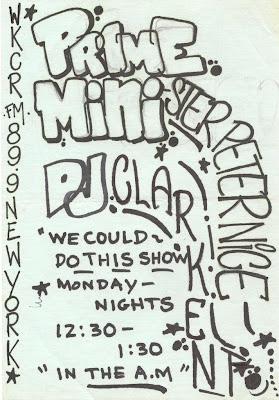 WKCR.FM.89.9 NEW YORK
PRIME
MiNiSTER PETER NiCE
DJ. CLARK KENT
"WE COULD~
DO THIS SHOW
MONDAY-
NIGHTS
12:30-
1:30
"IN THE A.M"